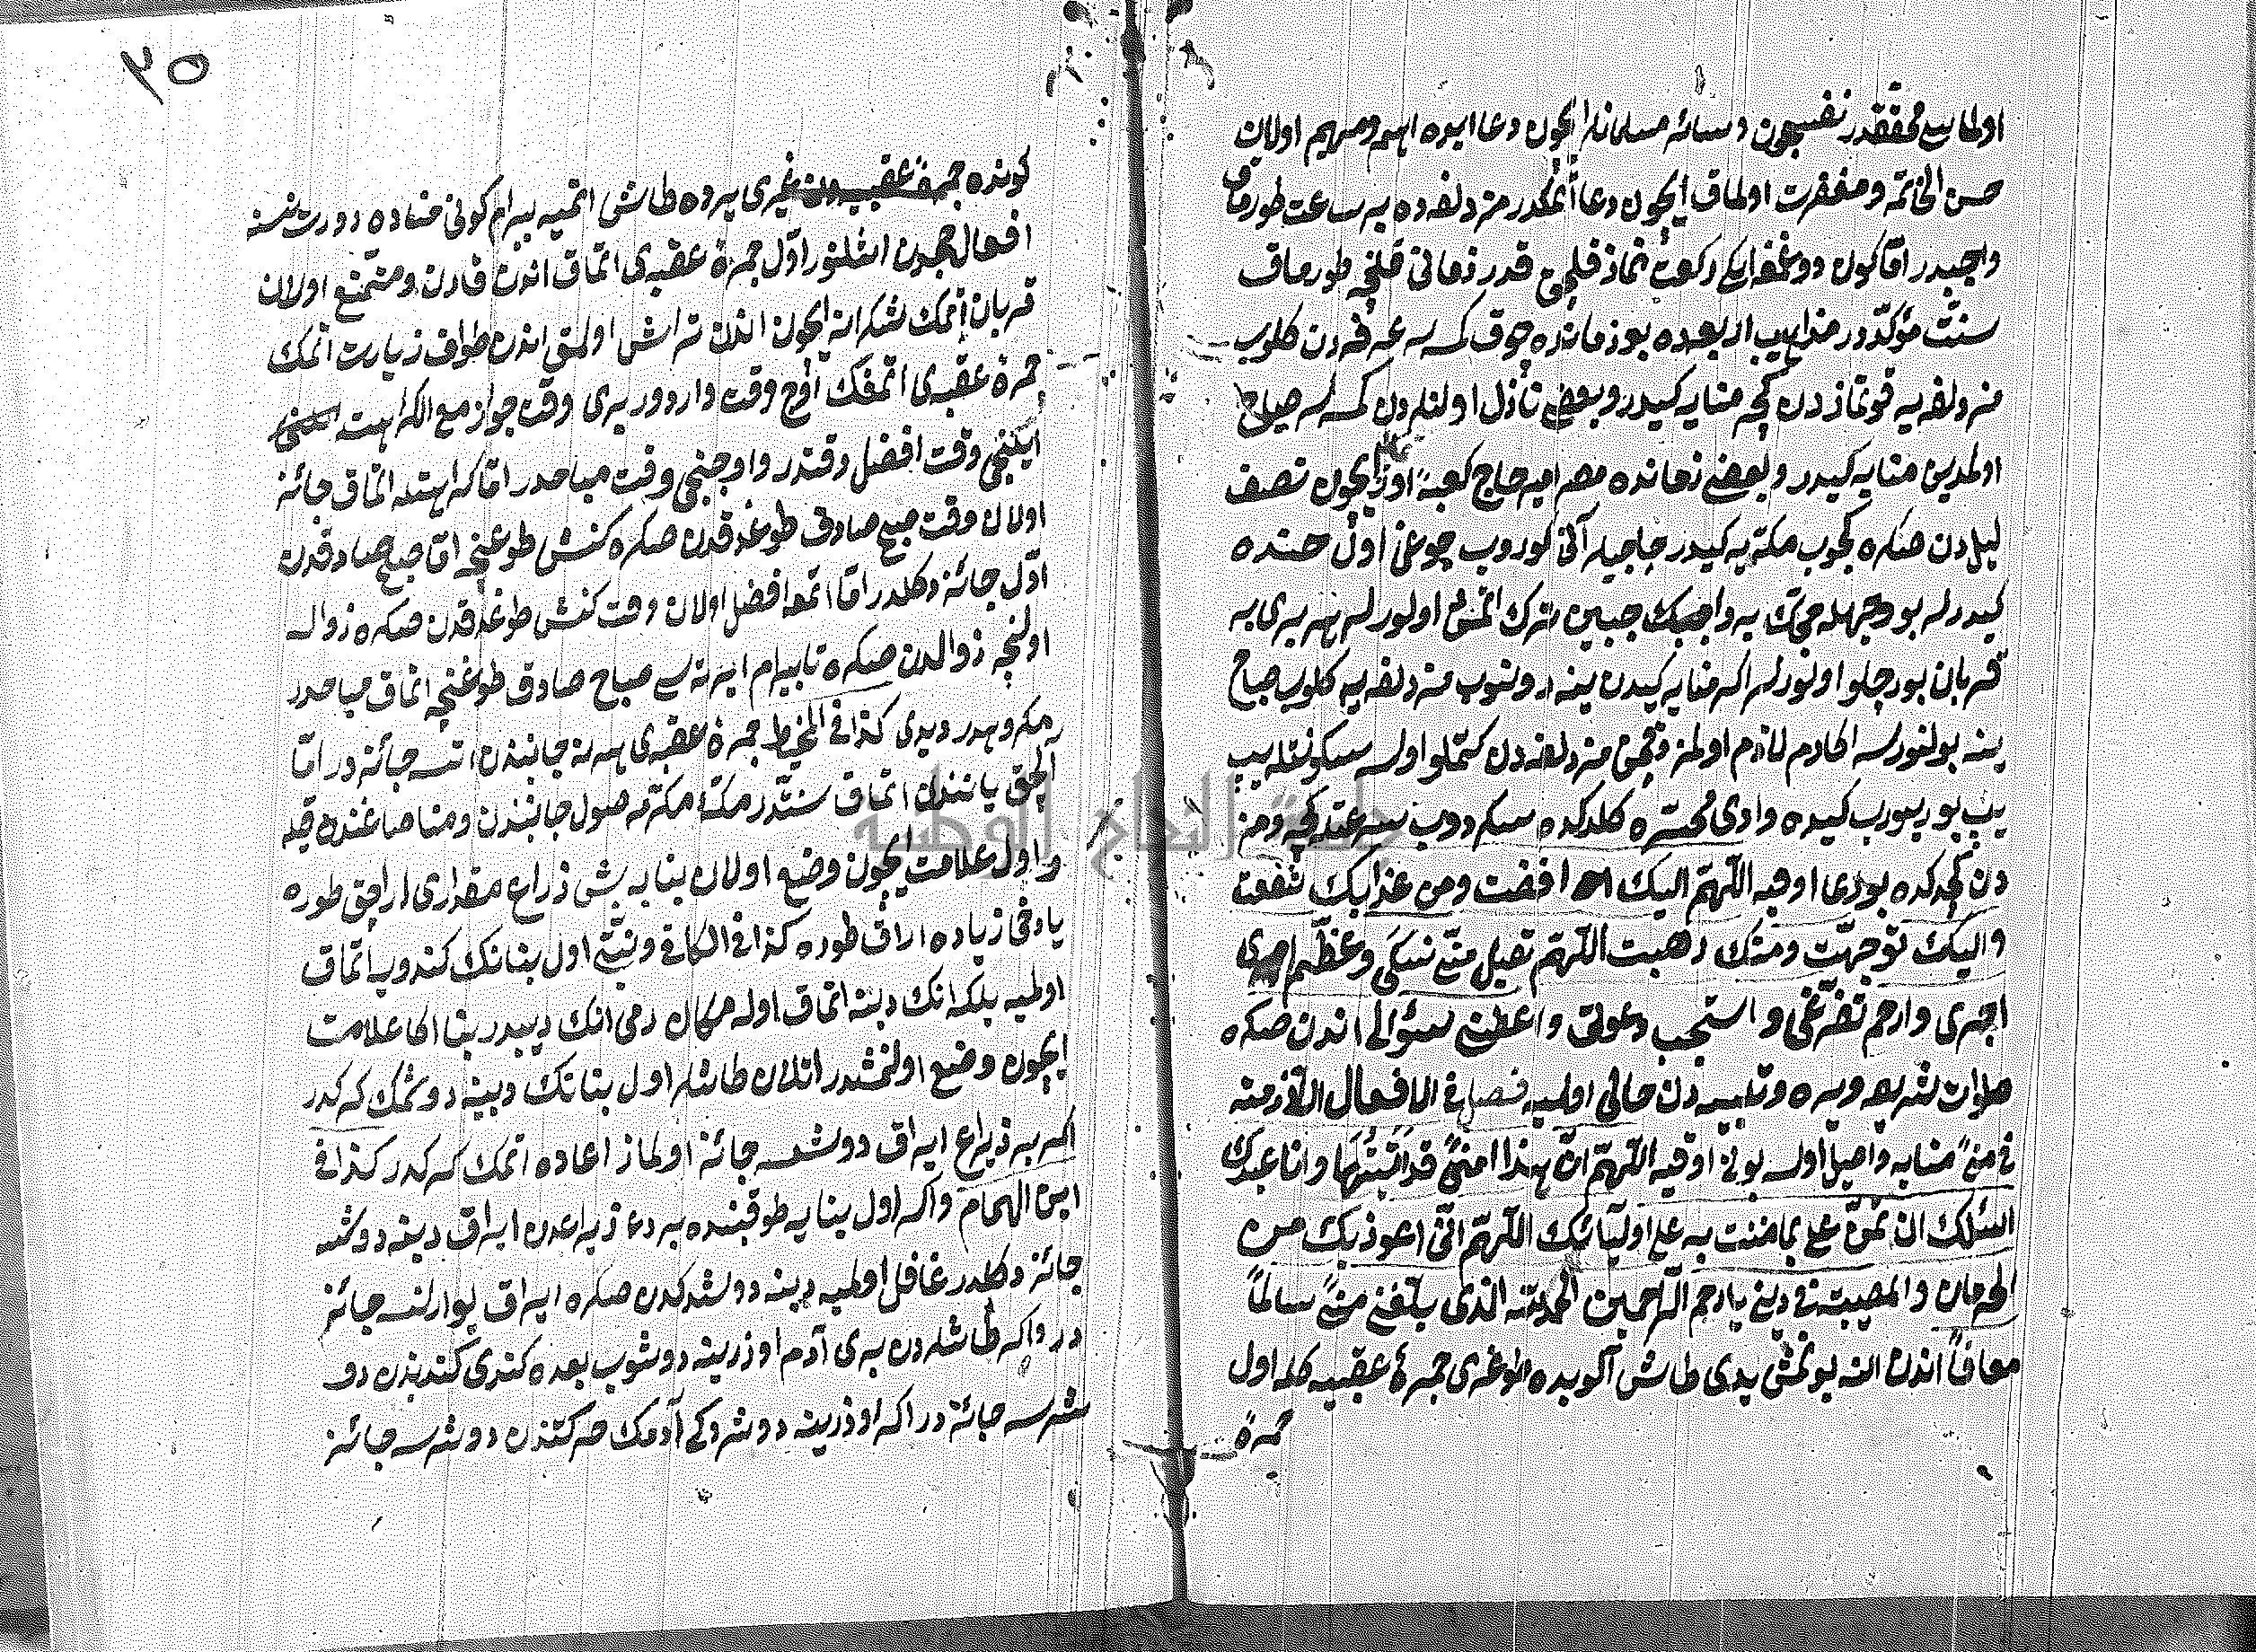 اولماسی محققدر نفسیچون وسائر مسلمانلر ایچون دعا ایده اهم ومهم اولان
حسن الخاتمه ومغفرت اولماق ایچون دعا اتمکدر مزدلفه ده بر ساعت طورماق
واجبدر اما کون دوغمغه ایکی رکعت نماز قلجق قدر زمانی قلنجه طورماق
سنت مؤکددر مذاهب اربعه ده بو زمانده چوق کمسه لر عرفه دن کلوب
مزدلفه یه قونمازدن کجه منایه کیدر وبعضی نازل اولنلردن کمسه لر صباح
اولمدین منایه کیدر وبعضی زمانده مصر امیر حاج کعبه اوزی ایچون نصف
لیلدن صکره کجوب مکه یه کیدر حاجیلر آنی کوروب چوغی اول حنده
کیدرلر بو وجهله حجک بر واجبک جبین ترک اتمش اولورلر هر بری بر
قربان بورجلو اولورلر اکر منایه کیدن ینه دونوب مزدلفه یه کلوب صباح
ینه بولنورسه اکا دم لازم اولمز قچن مزدلفه دن کتملو اولسه سکونتله یب
یب یوریوب کیده وادی محسره کلدکده سکردوب سرعتله کچه ومن
دن کچدکده بودی اوقیه اللهم الیک افضت ومن عذابک شفقت
والیک توجهت ومنک رهبت اللهم تقبل منی نسکی وعظم
اجری وارحم تضرعی واستجب دعوتی واعطنی سؤالی اندن صکره
صلوات شریفه ویره وتلبیه دن خالی اولمیه فصل فی الافعال اللازمته
فی منی منایه واصل اولسه بونی اوقیه اللهم ان هذا منی قد اتیتها وانا عبدک
اسئلک ان تمن علی بما مننت به علی اولیائک اللهم انی اعوذ بک من
الحرمان والمصیبته فی دینی یا ارحم الراحمین الحمد لله الذی بلغنی منی سالما
معافا اندن النه یونمش یدی طاش آلوب ده طوغری جمرۀ عقبیه کله اول
جمرۀ
٣٥
کونده جمرۀ عقبه دن غیری یرده طاش اتمیه بیرام کونی مناده دورت نسنه
افعال حجدن اشلنور اول جمرۀ عقبه ی اتماق اندن قارن ومتمتع اولان
قربان اتمک شکرانه ایچون اندن تراش اولمق اندن طواف زیارت اتمک
جمرۀ عقبه ی اتمغک اوچ وقت واردور بری وقت جواز مع الکراهت
ایکنجی وقت افضل وقتدر واوچنجی وقت مباحدر اما کراهتله اتماق جائز
اولان وقت صبح صادق طوغدقدن صکره کنش طوغنجه اما صبح صادقدن
اول جائز دکلدر اما اتمه افضل اولان وقت کنش طوغدقدن صکره زوال
اولنجه زوالدن صکره تا بیرام ایرته سی صباح صادق طوغنجه اتماق مباحدر
مکروهدر دیدی کذا فی المحیط جمرۀ عقبه ی هر نه جانبدن اتسه جائزدر اما
الچق یانندن اتماق سنتدر مکۀ مکرمه صول جانبندن ومنا صاغندن قله
واول علامت ایچون وضع اولان بنایه بش ذراع مقداری ایراجق طوره
یا دخی زیاده ایراق طوره کذا فی الکافی ونیتی اول بنانک کندویه اتماق
اولمیه بلکه انک دبنه اتماق اوله مکان رمی انک دیبدر بنا اکا علامت
ایچون وضع اولنمشدر اتلان طاشلر اول بنانک دبینه دوشمک کرکدر
اکر بر ذراع ایراق دوشسه جائز اولماز اعاده اتمک کرکدر کذا فی
ابن الهمام واکر اول بنایه طوقنده برده ذیراعدن ایراق دینه دوشه
جائز دکلدر غافل اولمیه دینه دوشدکدن صکره ایراق یوارلنسه جائز
در واکر طاشلردن بری آدم اوزرینه دوشوب بعده کندی کندیزن دو
شرسه جائزدر اکر اوزرینه دوشروکی آدمک حرکتندن دوشرسه جائز